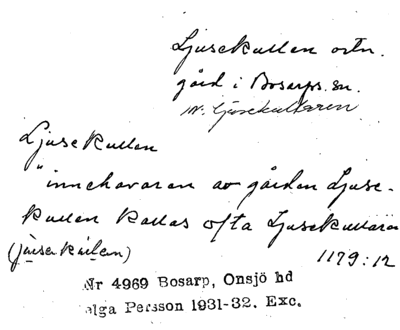 Ljusekullen ortn.
gård i Bosarps sn.
m. ljusekullaren
Ljusekullen
"innehavaren av gården Ljuse-
kullen kallas ofta Ljusekullaren
1179:12
Nr 4969 Bosarp, Onsjö hd
elga Persson 1931-32. Exc.